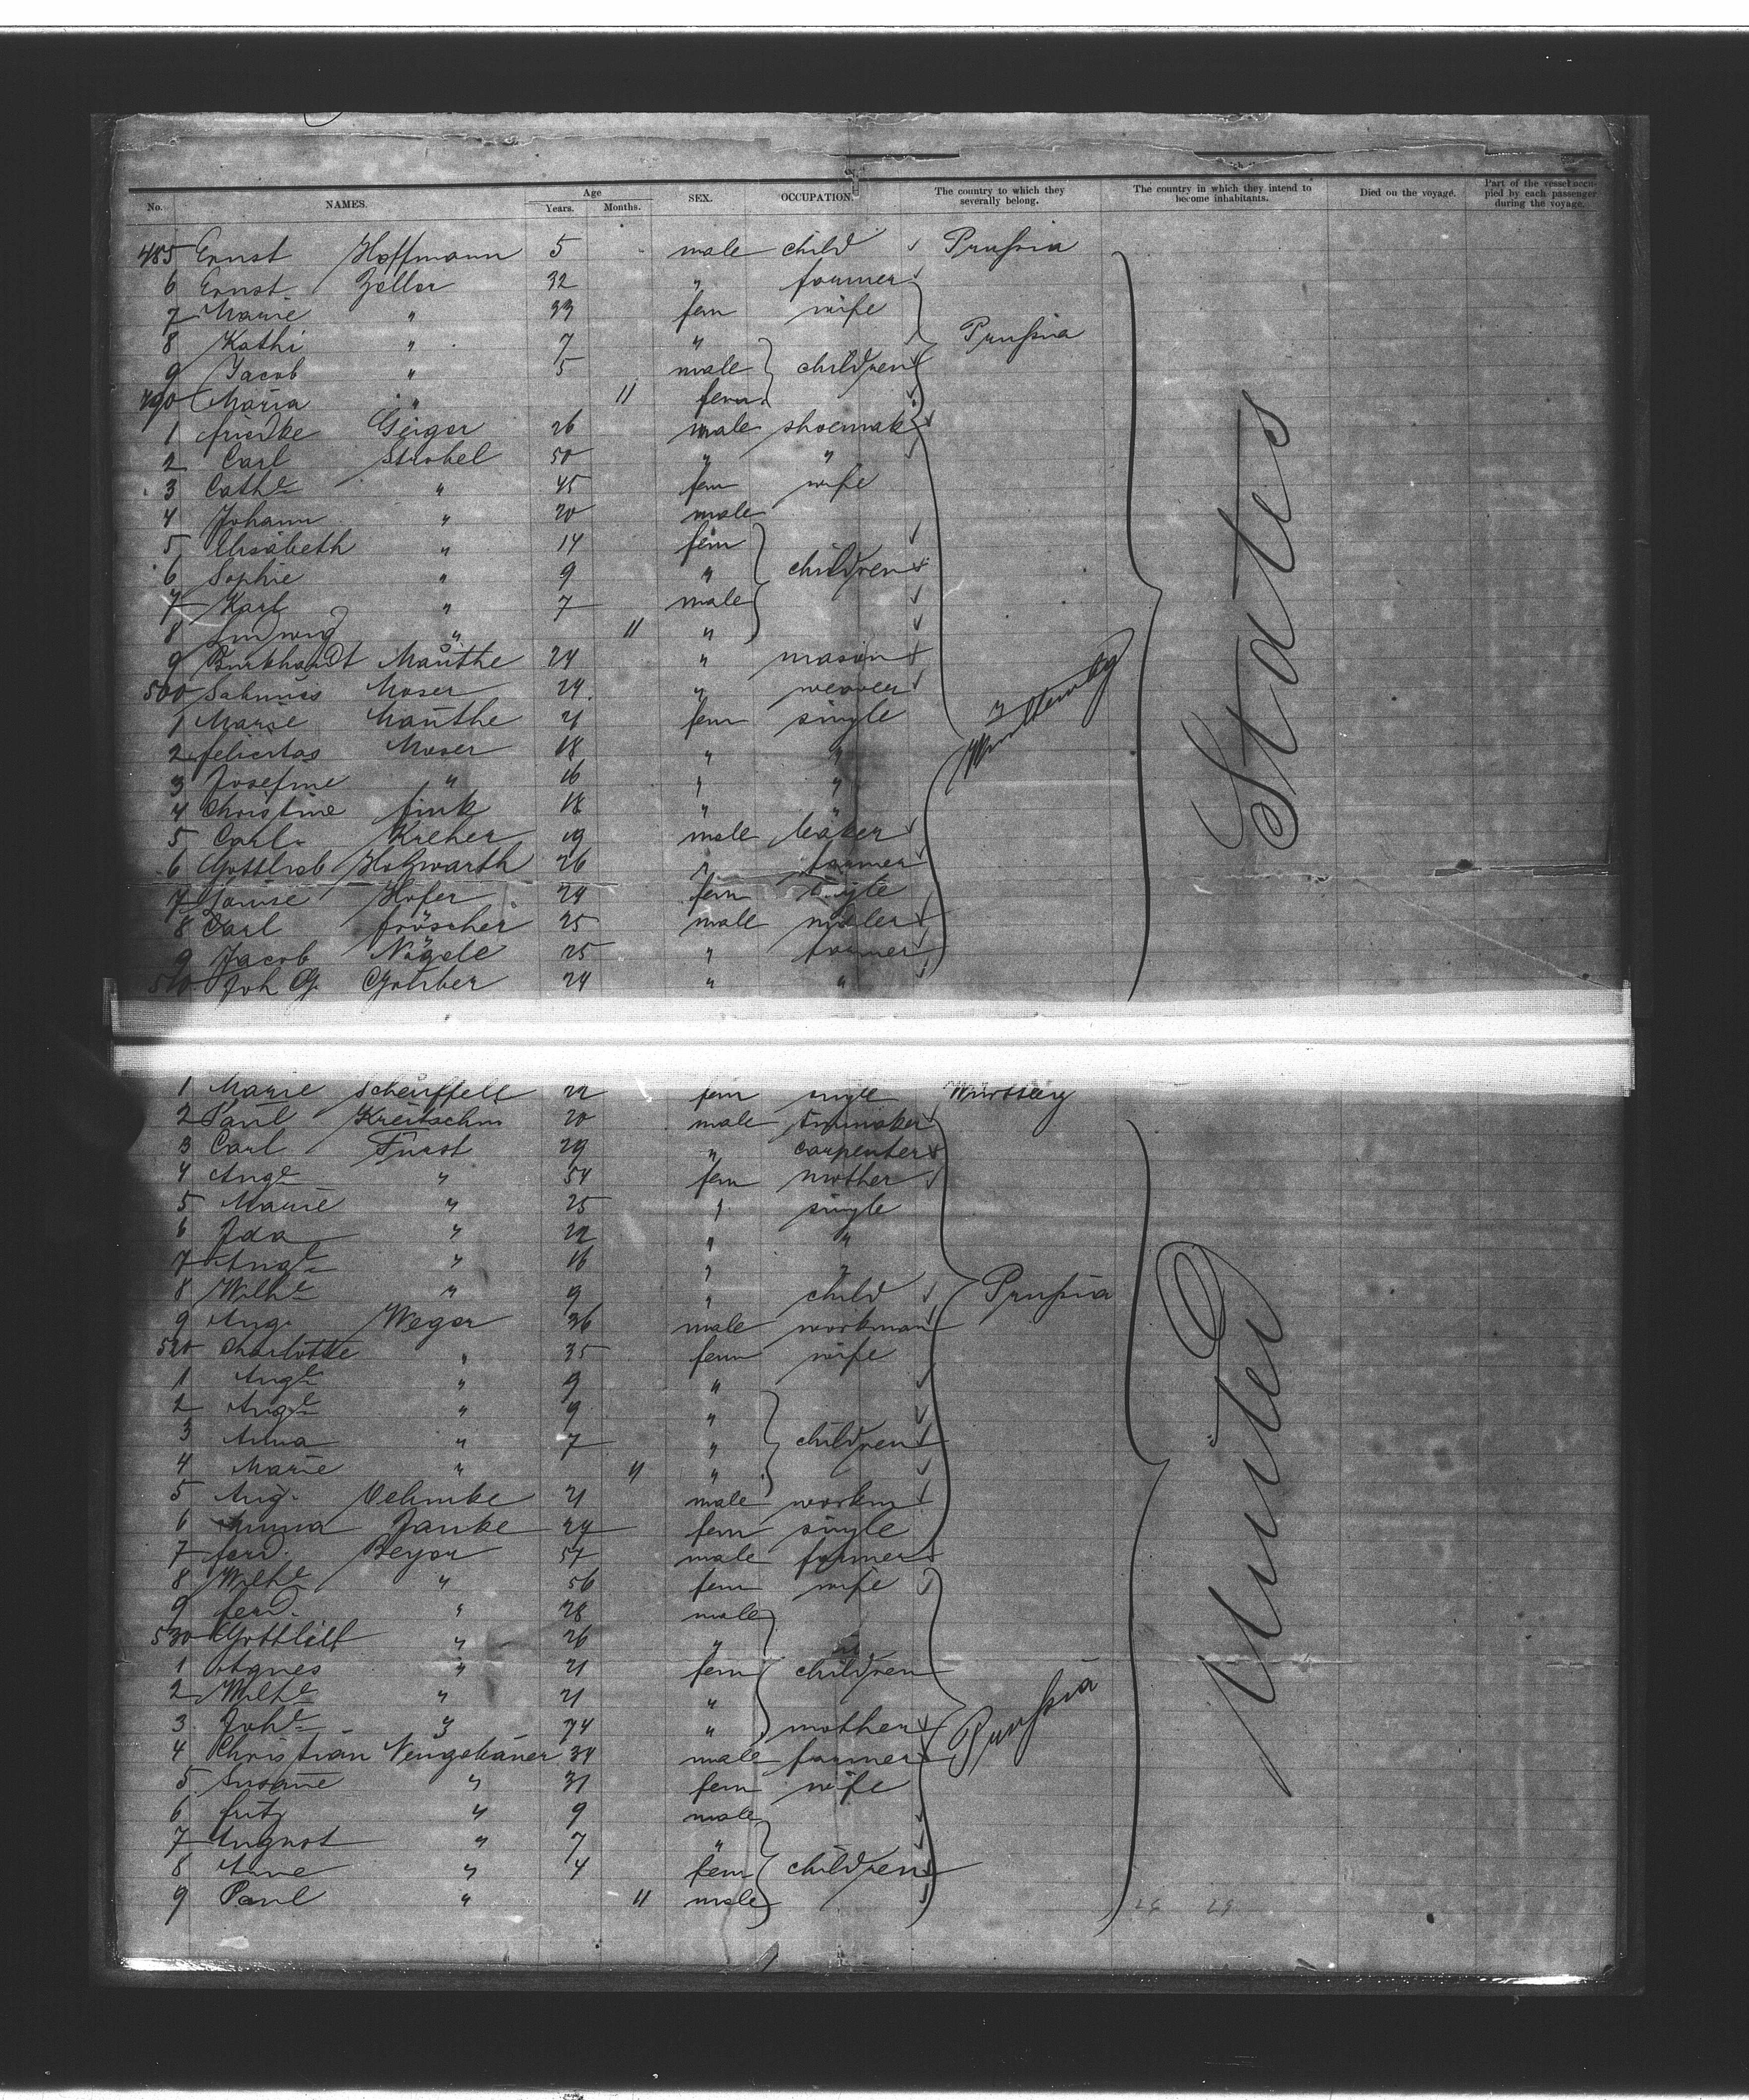 No. NAMES. Age Years. Months. SEX. OCCUPATION. The country to which they severally belong. The country in which they intend to become inhabitants. Died on the voyage. Part of the vessel occupied by each passenger during the voyage.
485 Ernst Hoffmann 5 male child Prußia
6 Ernst Zoller 32 " farmer
7 Marie " 33 fem wife
8 Kathi " 7 " Prußia
9 Jacob " 5 male children
490 Maria " 11 fem
1 Geiger 26 male shoemak
2 Carl Strobel 50 " "
3 Cathe " 45 fem wife
4 Johann " 20 male
5 Elisabeth " 14 fem
6 Sophie " 9 " children
7 Karl " 7 male
8 Ludwig " 11 "
9 Burkhardt Mauthe 24 " mason
500 Moser 24 " weaver
1 Marie Mauthe 21 fem single
2 Felicitas Moser 18 " "
3 Josefine " 16 " "
4 Christine Fink 18 " "
5 Carl Kreher 19 male baker
6 Gottlieb Holzwarth 26 " farmer
7 Louise Hofer 24 fem single
8 Carl Fröscher 25 male
9 Jacob Nägele 25 " farmer
510 Joh G. 24 " "
States
1 Marie Scheuffele 22 fem single
2 Paul Kreitschm 20 male
3 Carl Furst 29 " carpenter
4 Auge " 54 fem mother
5 Marie " 25 " single
6 Ida " 22 " "
7 Auge " 16 " "
8 Wilhe " 9 " child Prußia
9 Aug. Weger 36 male workman
520 Charlotte " 35 fem wife
1 Auge " 9 "
2 Auge " 9 "
3 Anna " 7 " children
4 Marie " 11 "
5 Aug. Oehmke 21 male workm
6 Janke 24 fem single
7 Ferd. Beyer 57 male farmer
8 Wilhe " 56 fem wife
9 Ferd. " 28 male
530 " 26 "
1 Agnes " 21 fem children
2 Wilhe " 21 "
3 Johe " 74 " mother Prußia
4 Christian Neugebauer 34 male farmer
5 Susanne " 31 fem wife
6 Fritz " 9 male
7 August " 7 "
8 Anne " 4 fem children
9 Paul " 11 male
United